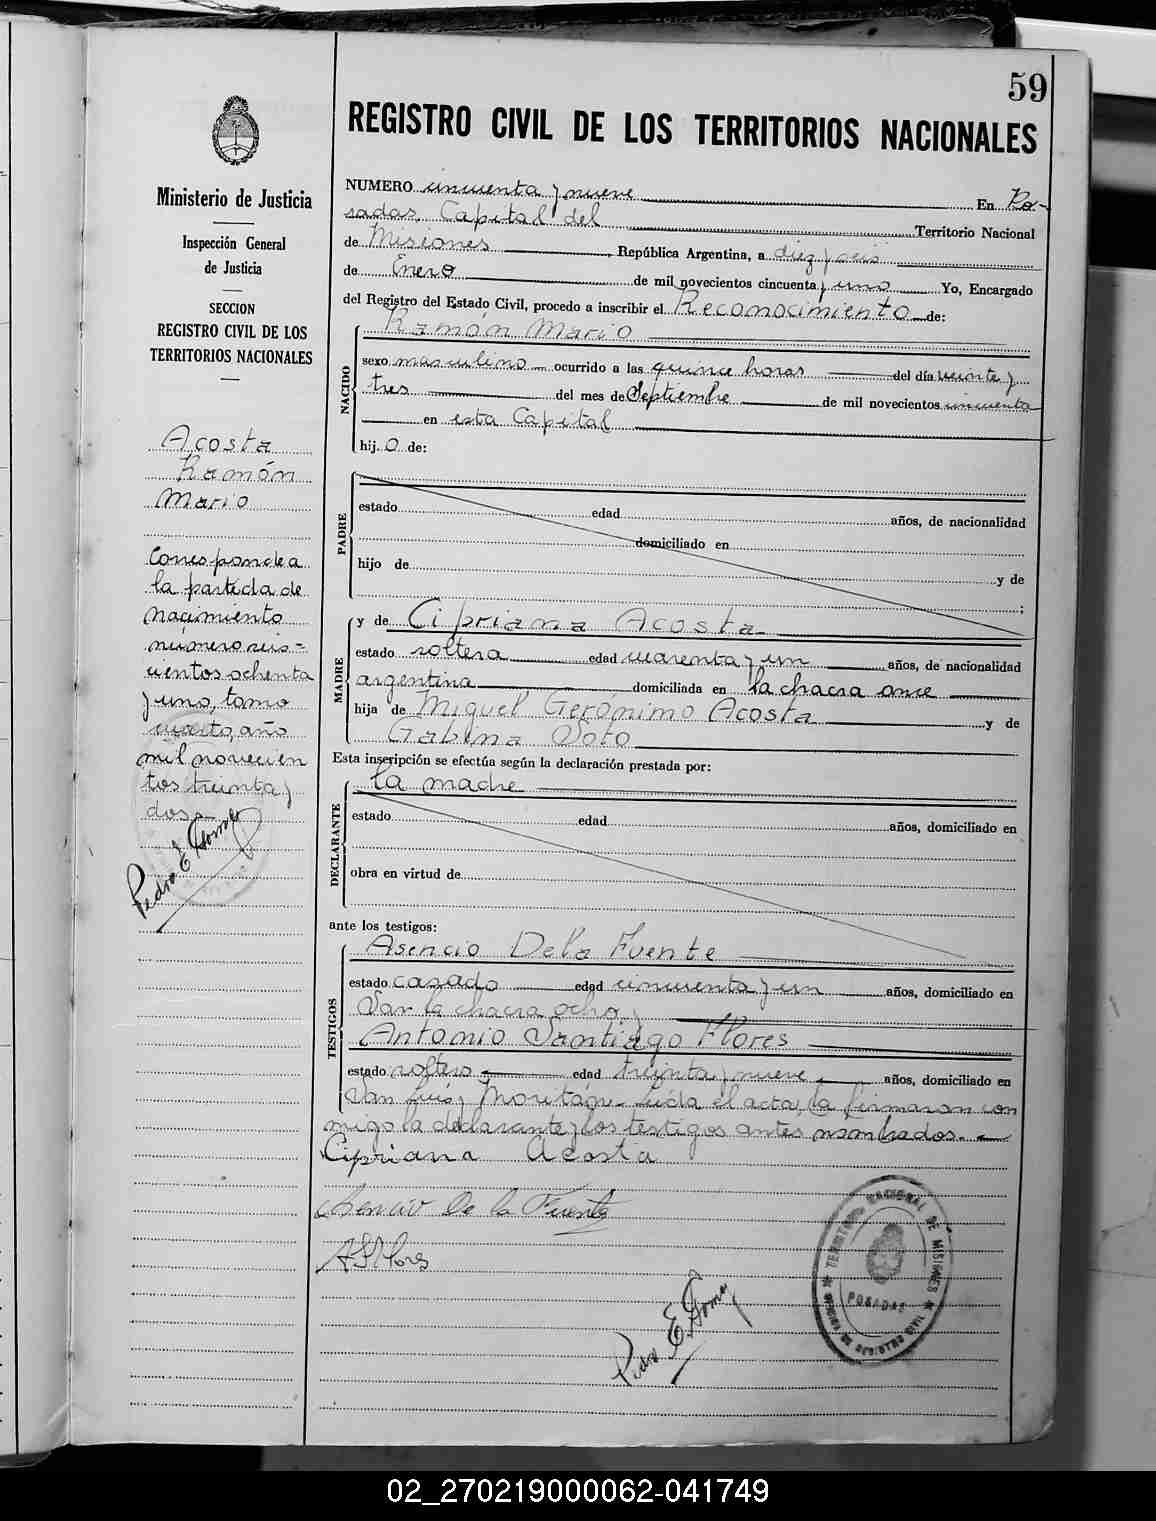 59
REGISTRO CIVIL DE LOS TERRITORIOS NACIONALES
Ministerio de Justicia
Inspección General
de Justicia
SECCION
REGISTRO CIVIL DE LOS
TERRITORIOS NACIONALES
Acosta
Ramón
Mario
Corresponde a
la partida de
nacimiento
número seis-
cientos ochenta
y uno, tomo
cuarto, año
mil novecien
tos treinta y
dos.
Pedro E. Gomez
NUMERO cincuenta y nueve En Po-
sadas, Capital del Territorio Nacional
de Misiones República Argentina, a diez y seis
de Enero de mil novecientos cincuenta y uno Yo, Encargado
del Registro del Estado Civil, procedo a inscribir el Reconocimiento de:
NACIDO
Ramón Mario
sexo masculino ocurrido a las quince horas del día veinte y
tres del mes de Septiembre de mil novecientos cincuenta
en esta Capital
hij o de:
PADRE
estado edad años, de nacionalidad
domiciliado en
hijo de y de
;
MADRE
y de Cipriana Acosta
estado soltera edad cuarenta y un años, de nacionalidad
argentina domiciliada en la chacra once
hija de Miguel Gerónimo Acosta y de
Gabina Soto
Esta inscripción se efectúa según la declaración prestada por:
la madre
DECLARANTE
estado edad años, domiciliado en
obra en virtud de
ante los testigos:
TESTIGOS
Asencio De la Fuente
estado casado edad cincuenta y un años, domiciliado en
la chacra ocho y
Antonio Santiago Flores
estado soltero edad treinta y nueve años, domiciliado en
San Luis y Moritán. Leída el acta, la firmaron con
migo la declarante y los testigos antes nombrados.
Cipriana Acosta
Asencio De la Fuente
A S Flores
Pedro E. Gomez
TERRITORIO NACIONAL DE MISIONES
POSADAS
OFICINA DE REGISTRO CIVIL
02_270219000062-041749